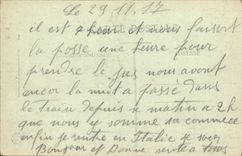 Le 29.11.17
il est 2 heur et nous faisont
la posse une heure pour
prendre le jus nous avont
encor la nuit a passe dans
le train depuis se matin a 2h
que nous y somme sa commece
enfin je rentre en Italie se soir
Bonjour et Bonne sante a tous